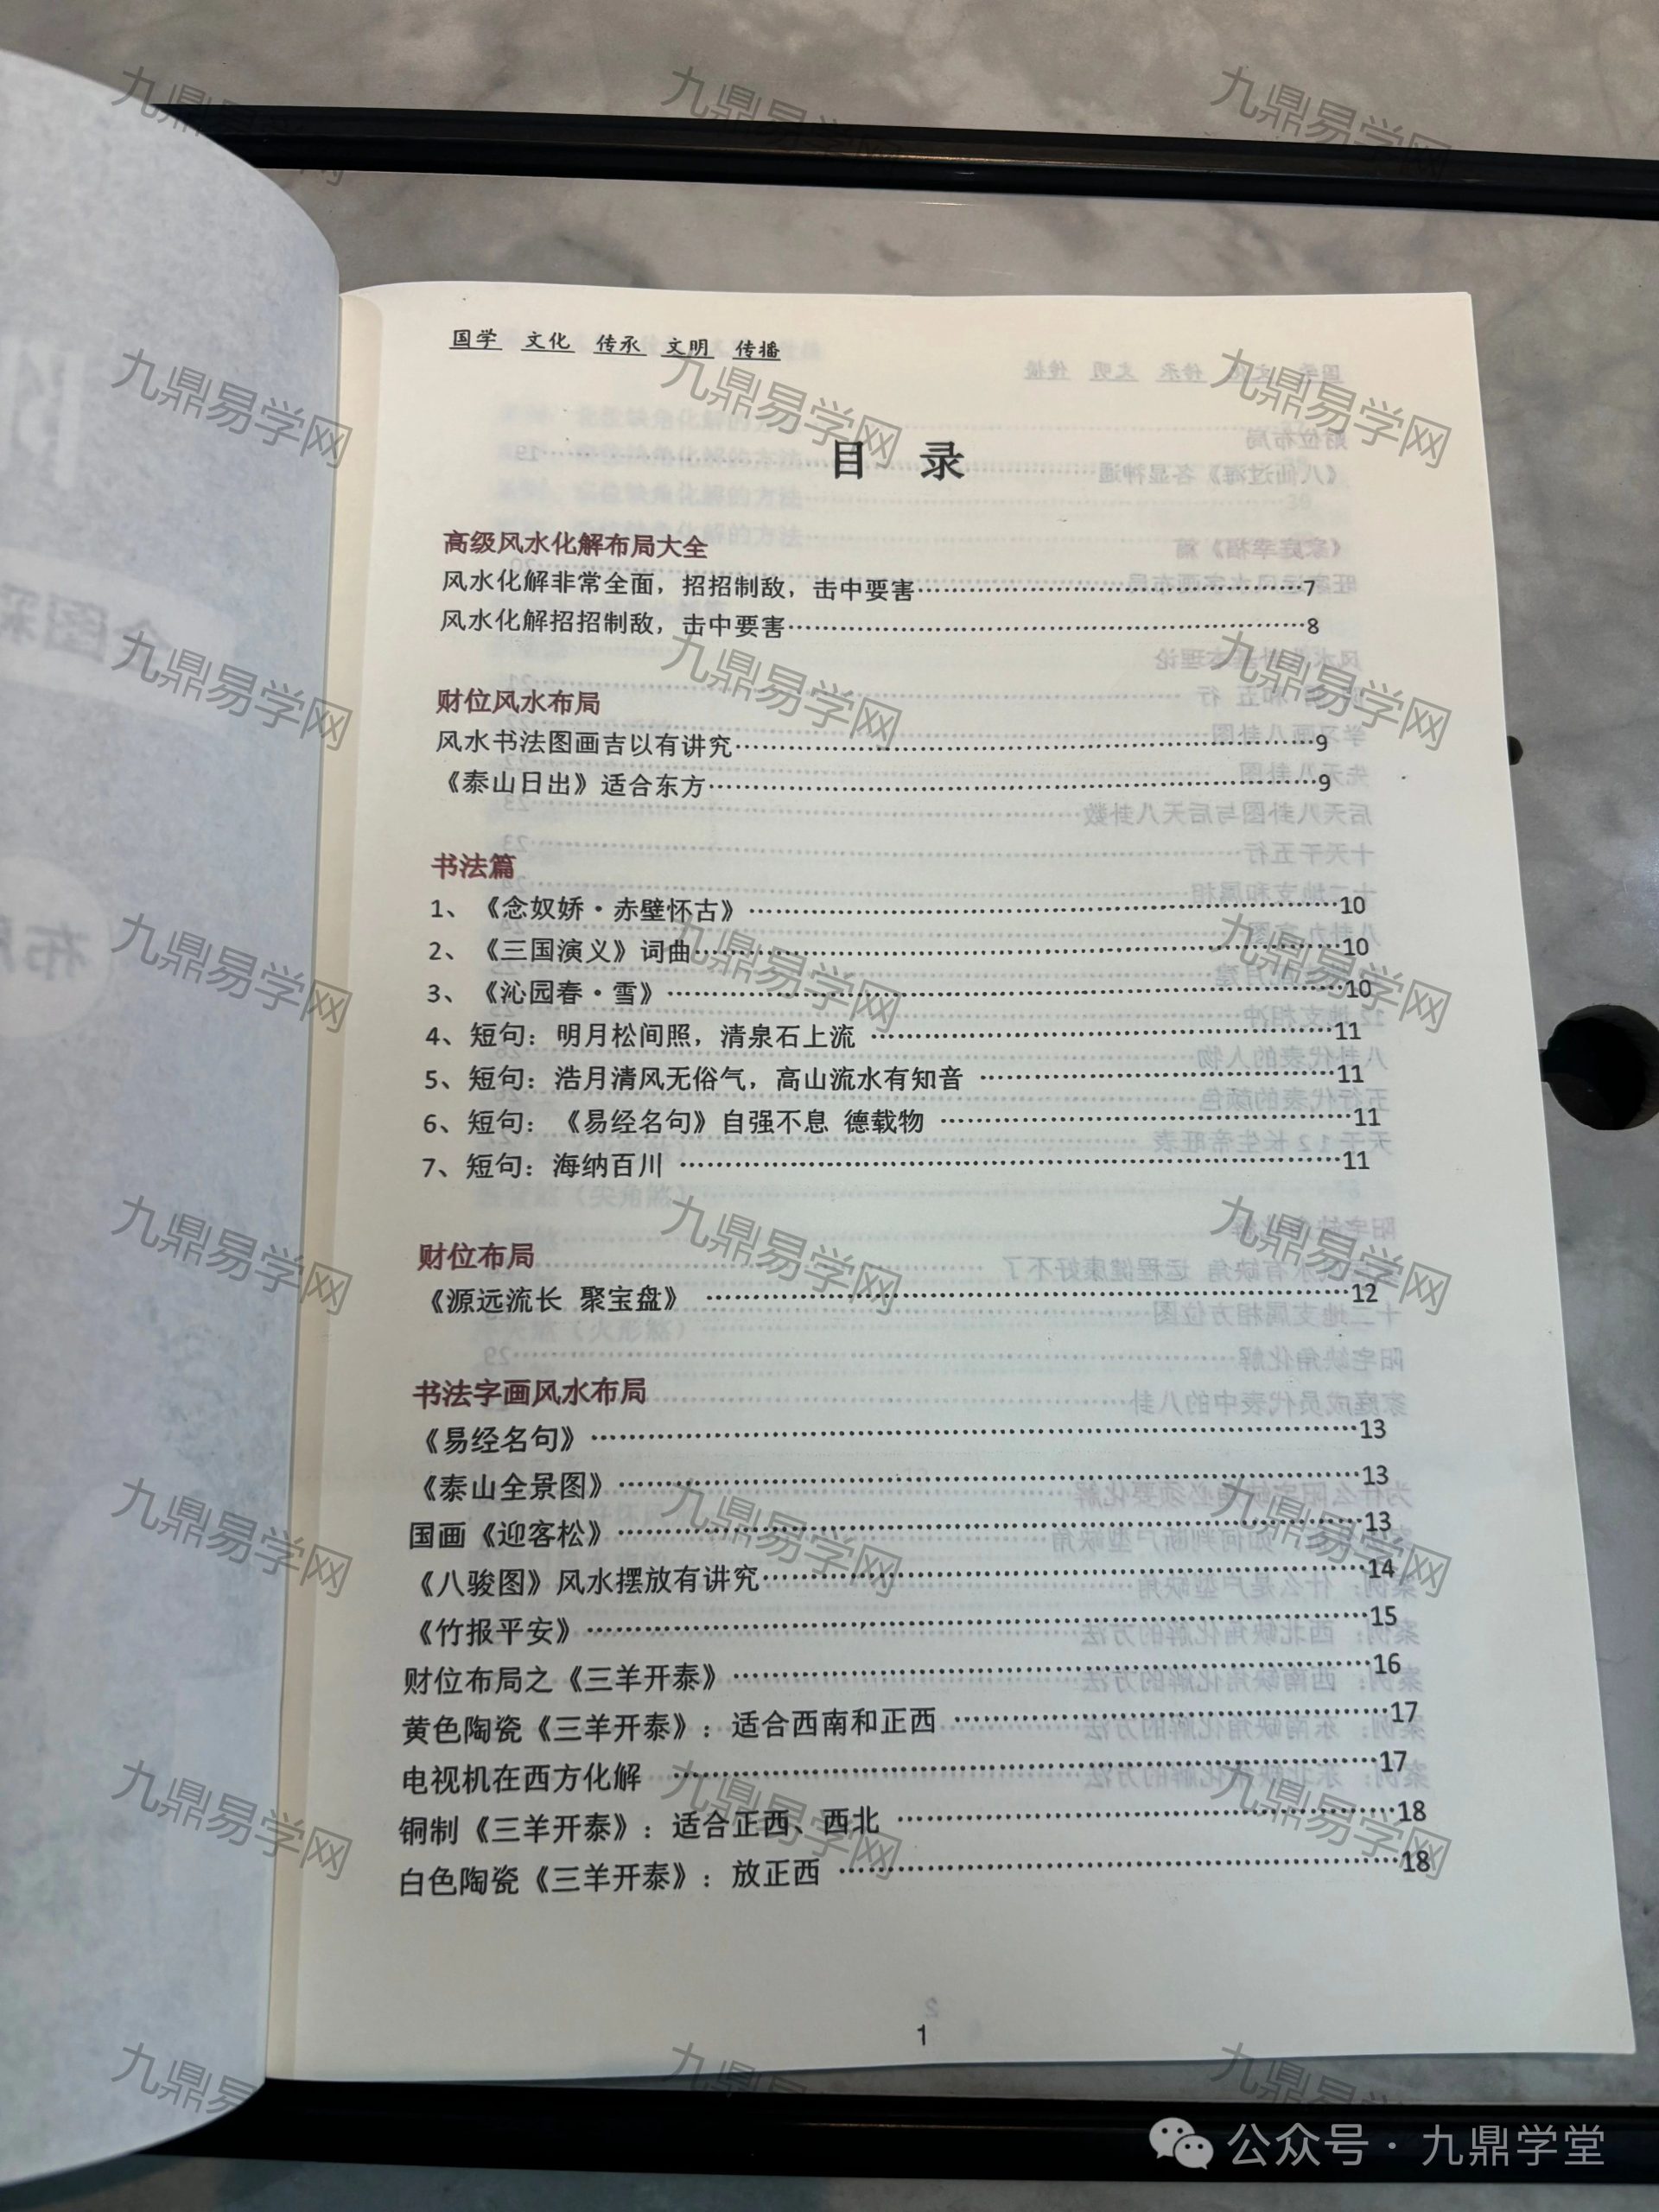 国学 文化 传承 文明 传播
目 录
高级风水化解布局大全
风水化解非常全面，招招制敌，击中要害……7
风水化解招招制敌，击中要害……8
财位风水布局
风水书法图画吉以有讲究……9
《泰山日出》适合东方……9
书法篇
1、《念奴娇·赤壁怀古》……10
2、《三国演义》词曲……10
3、《沁园春·雪》……10
4、短句：明月松间照，清泉石上流……11
5、短句：浩月清风无俗气，高山流水有知音……11
6、短句：《易经名句》自强不息 德载物……11
7、短句：海纳百川……11
财位布局
《源远流长 聚宝盘》……12
书法字画风水布局
《易经名句》……13
《泰山全景图》……13
国画《迎客松》……13
《八骏图》风水摆放有讲究……14
《竹报平安》……15
财位布局之《三羊开泰》……16
黄色陶瓷《三羊开泰》：适合西南和正西……17
电视机在西方化解……17
铜制《三羊开泰》：适合正西、西北……18
白色陶瓷《三羊开泰》：放正西……18
1
九鼎易学网
公众号·九鼎学堂